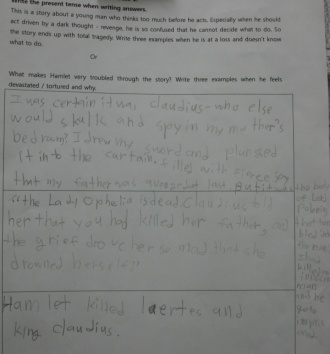 Write the present tense when writing answers.
This is a story about a young man who thinks too much before he acts. Especially when he should
act driven by a dark thought - revenge, he is so confused that he cannot decide what to do. So
the story ends up with total tragedy. Write three examples when he is at a loss and doesn't know
what to do.
Or
What makes Hamlet very troubled through the story? Write three examples when he feels
devastated / tortured and why.
I was certain it was claudius - who else
would skulk and spy in my mother's
bedroom? I drew my sword and plunged
it into the curtain. filled with fierce joy
that my father was avenged last. But it
"the Lady Ophelia is dead. Claudius told
her that you had killed her father, and
the grief drove her so mad that she
drowned herself."
Hamlet killed laertes and
king claudius.
the body
killed
man
and he
gets